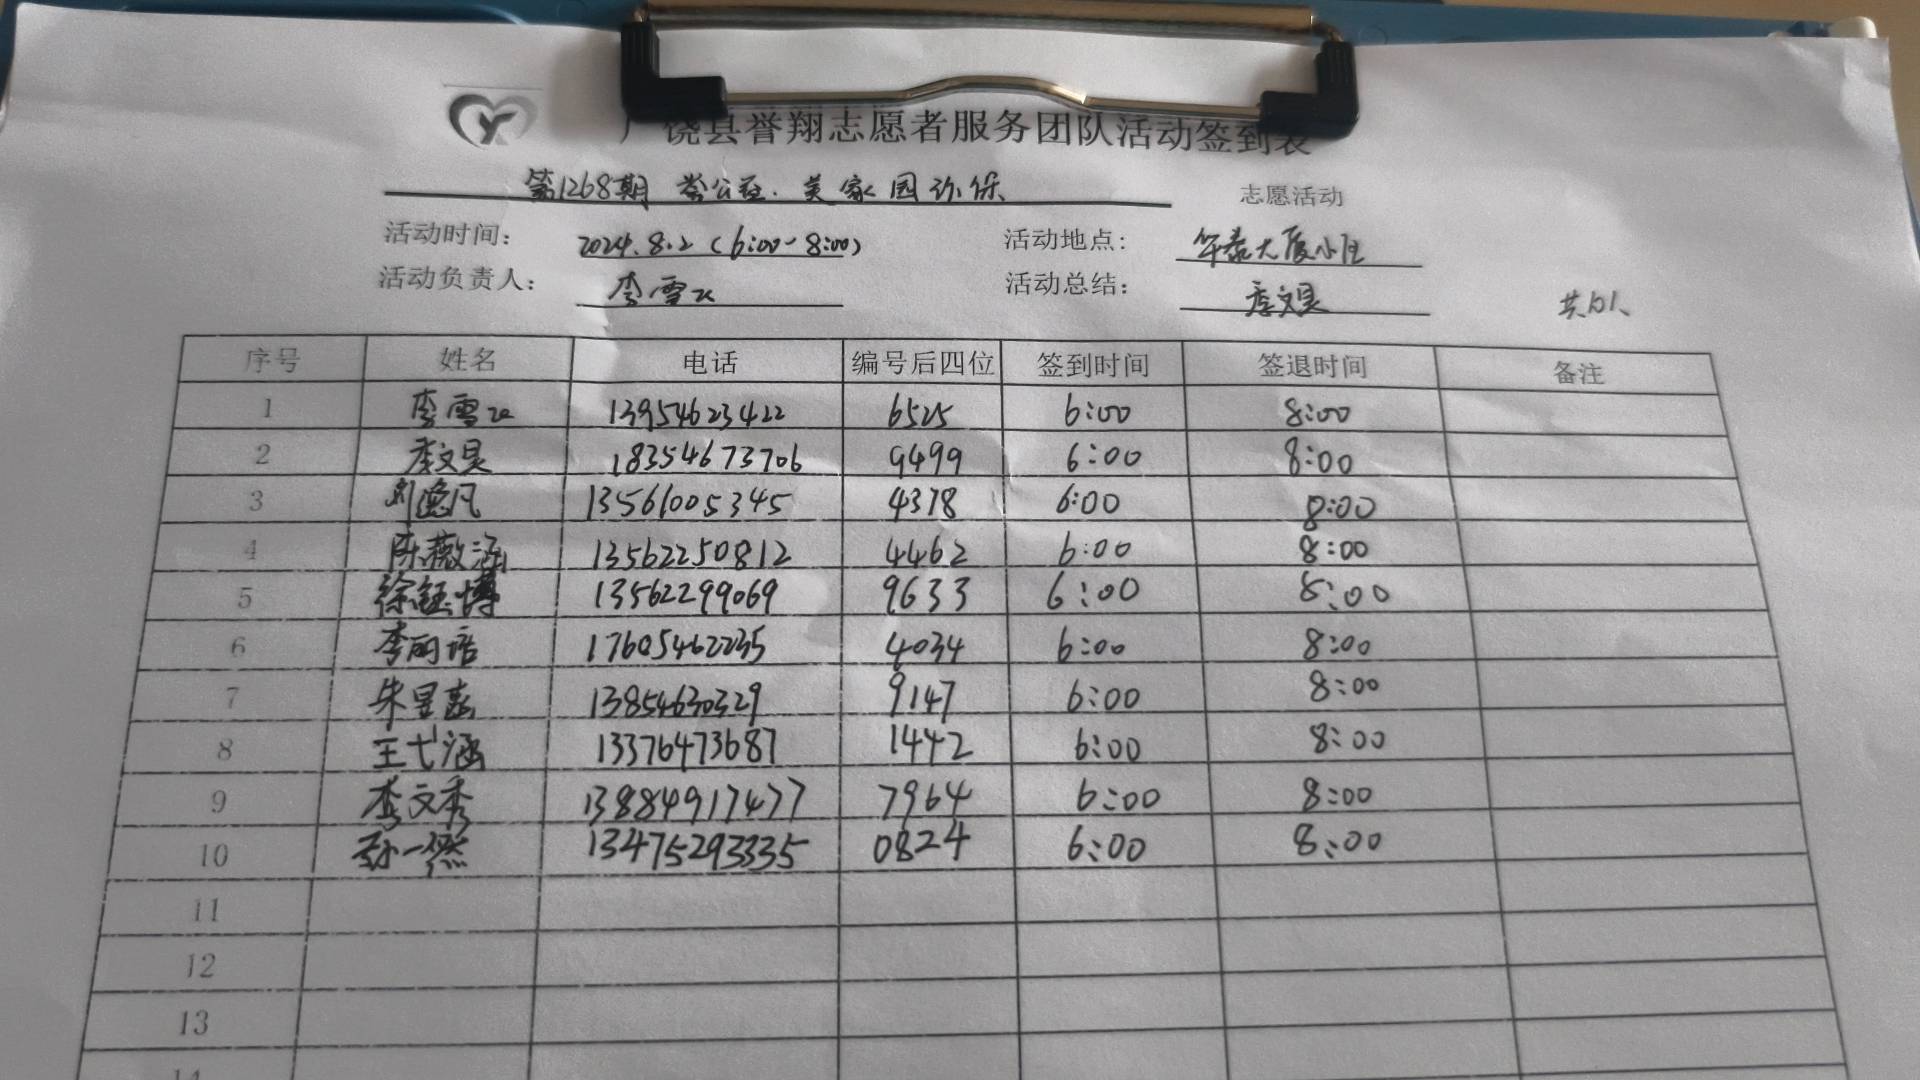 广饶县誉翔志愿者服务团队活动签到表
第1268期 誉公益·美家园环保 志愿活动
活动时间: 2024.8.2(6:00-8:00) 活动地点: 华泰大厦小区
活动负责人: 李雪 活动总结: 李文昊 共10人
序号 姓名 电话 编号后四位 签到时间 签退时间 备注
1 李雪 13954623422 6525 6:00 8:00
2 李文昊 18354673706 9499 6:00 8:00
3 刘逸凡 13561005345 4378 6:00 8:00
4 陈薇涵 13562250812 4462 6:00 8:00
5 徐钰博 13562299069 9633 6:00 8:00
6 李雨 17605462235 4034 6:00 8:00
7 朱昱 13854630329 9147 6:00 8:00
8 王弋涵 13376473687 1442 6:00 8:00
9 李文秀 13884917477 7964 6:00 8:00
10 孙一然 13475293335 0824 6:00 8:00
11
12
13
14